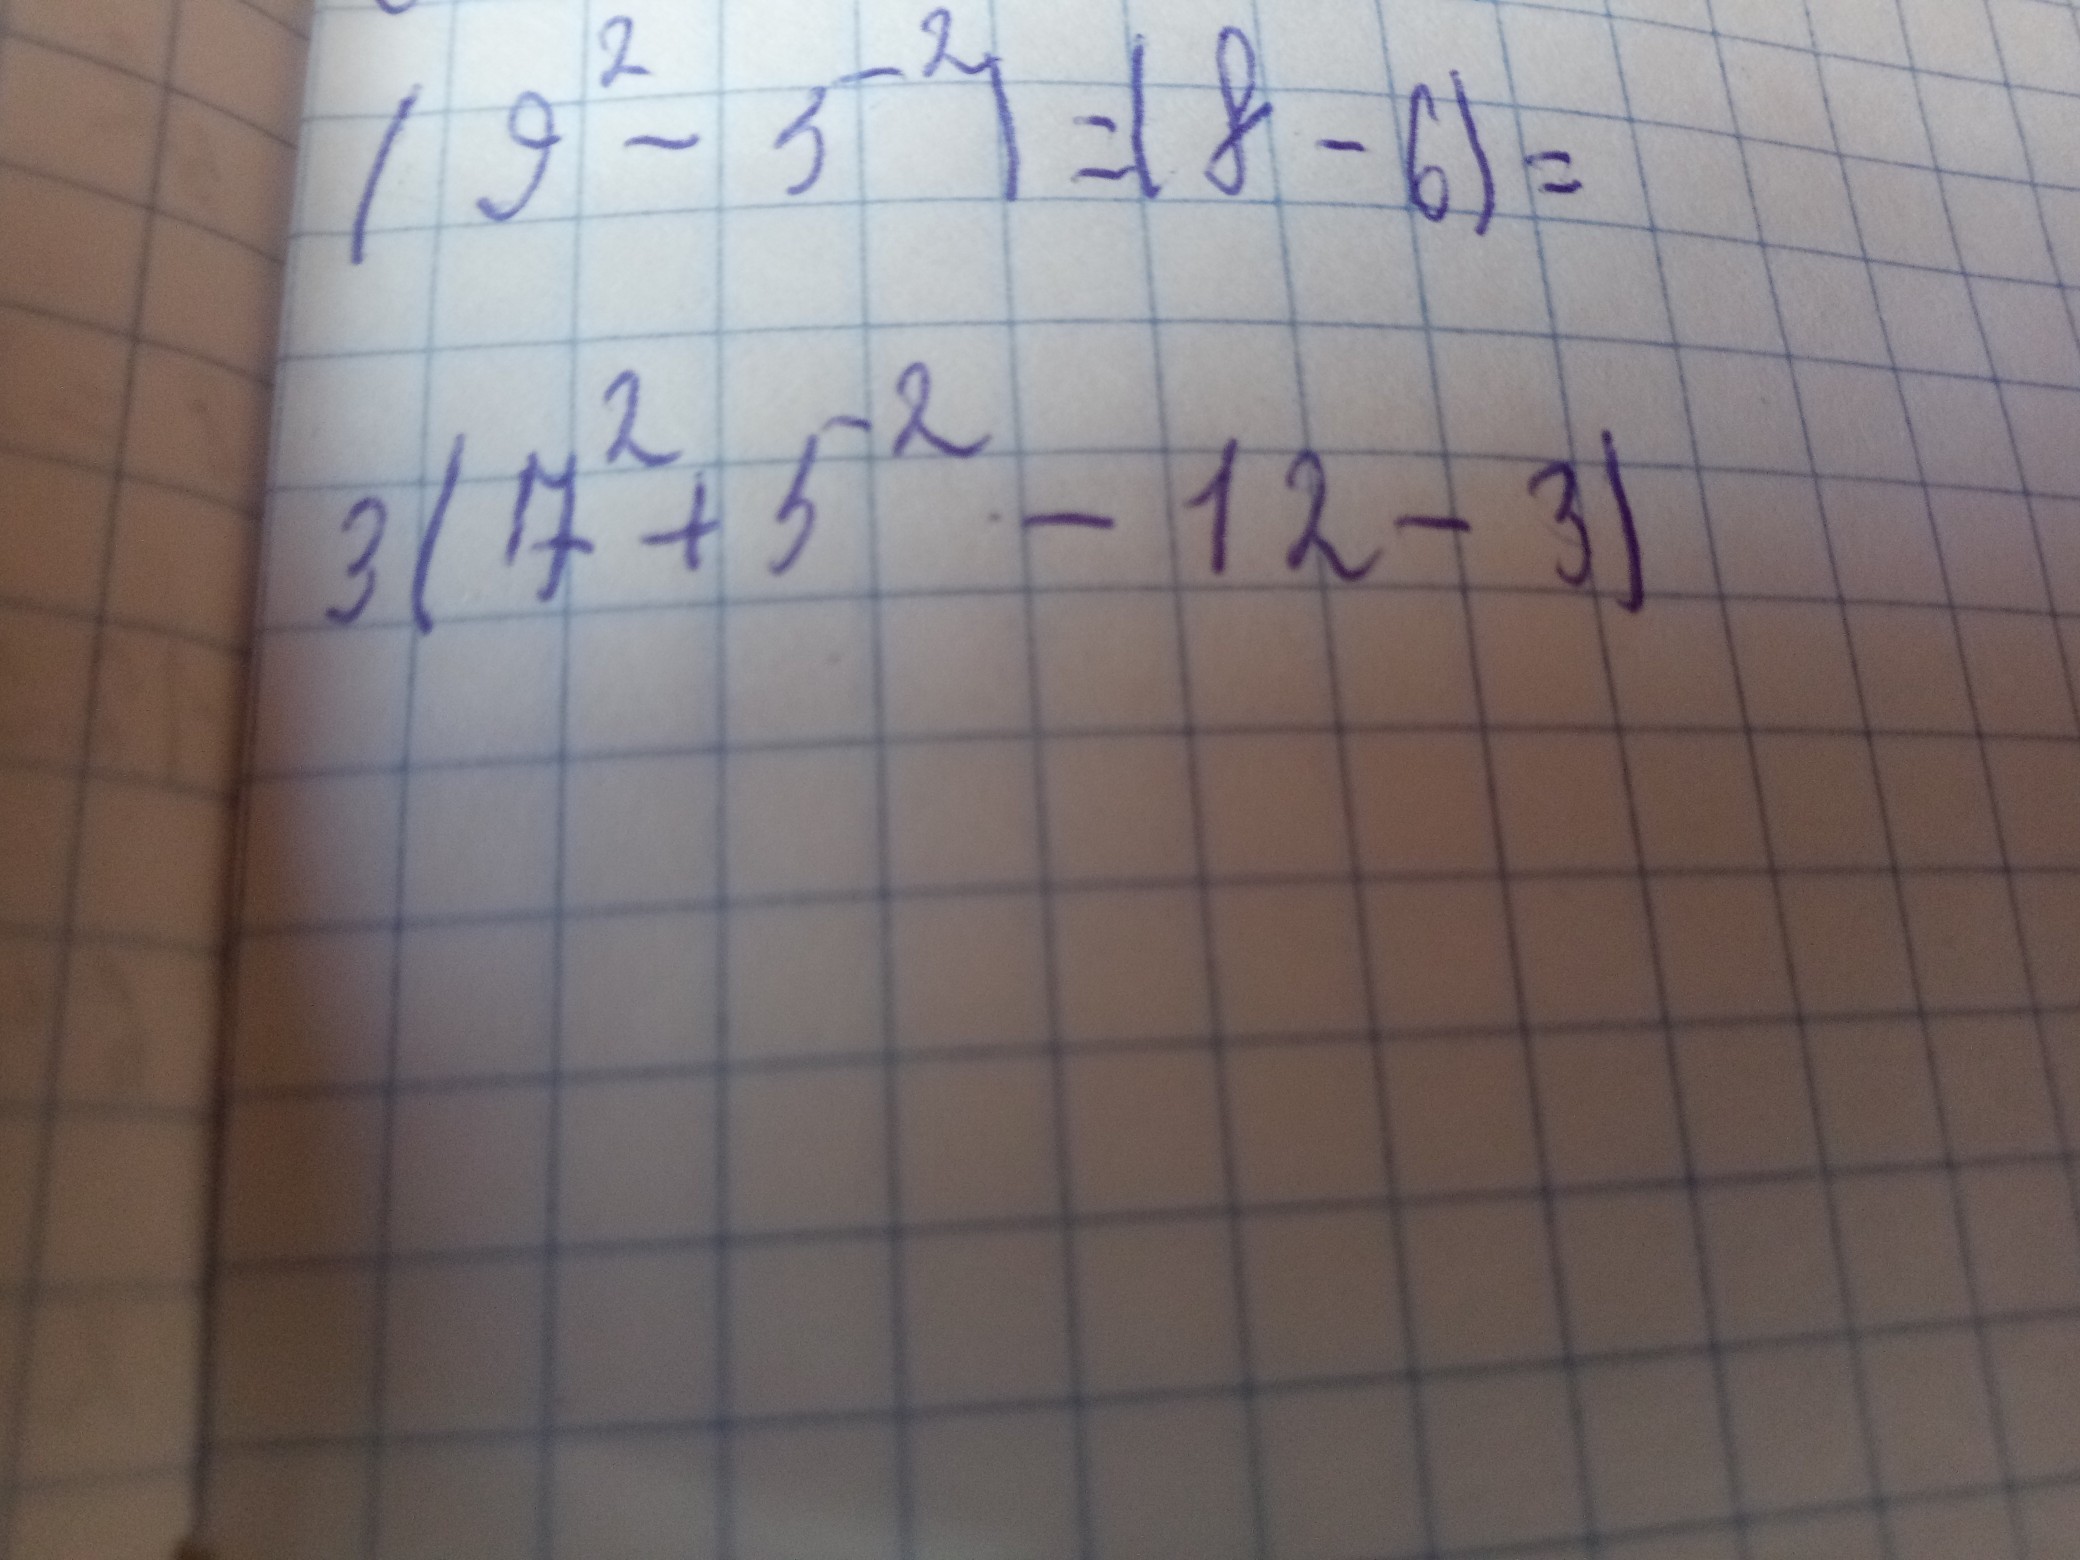 (9² - 5⁻²) = (8 - 6) =
3(7² + 5⁻² - 12 - 3)